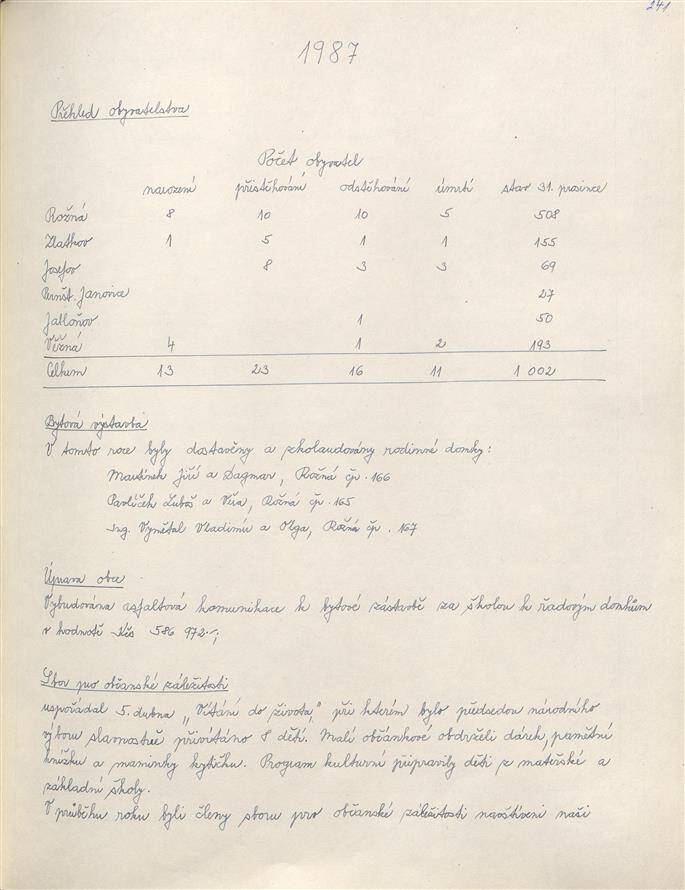 241
1987
Přehled obyvatelstva
Počet obyvatel
narození přistěhování odstěhování úmrtí stav 31. prosince
Rožná 8 10 10 5 508
Zlatkov 1 5 1 1 155
Josefov 8 3 3 69
Pernšt. Janovice 27
Jabloňov 1 50
Věžná 4 1 2 193
Celkem 13 23 16 11 1 002
Bytová výstavba
V tomto roce byly dostavěny a zkolaudovány rodinné domky:
Martínek Jiří a Dagmar, Rožná čp. 166
Pavlíček Luboš a Věra, Rožná čp. 165
Ing. Vymětal Vladimír a Olga, Rožná čp. 167
Úprava obce
Vybudována asfaltová komunikace k bytové zástavbě za školou k řadovým domkům
v hodnotě Kčs 586 972.-;
Sbor pro občanské záležitosti
uspořádal 5. dubna „Vítání do života," při kterém bylo předsedou národního
výboru slavnostně přivítáno 8 dětí. Malí občánkové obdrželi dárek, pamětní
knížku a maminky kytičku. Program kulturní připravily děti z mateřské a
základní školy.
V průběhu roku byli členy sboru pro občanské záležitosti navštíveni naši